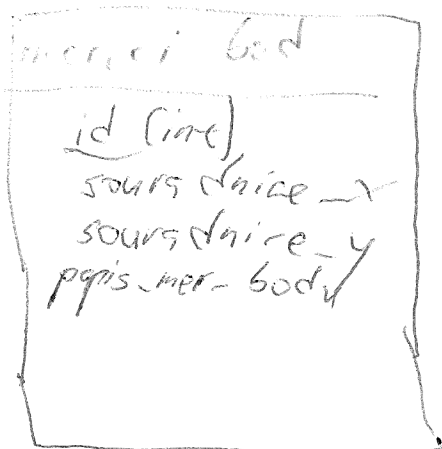 merici bod
id (int)
souradnice_x
souradnice_y
popis_mer_bodu